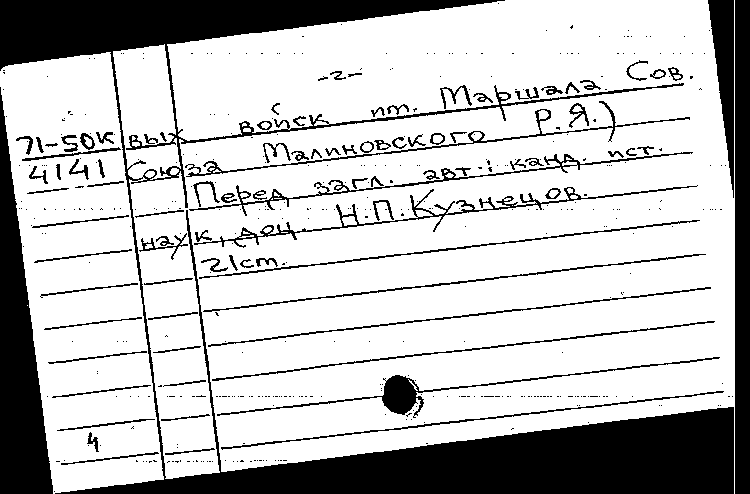 -2-
71-50К вых войск им. Маршала Сов.
4141 Союза Малиновского Р.Я.)
Перед загл. авт.: канд. ист.
наук, доц. Н.П.Кузнецов.
21ст.
4